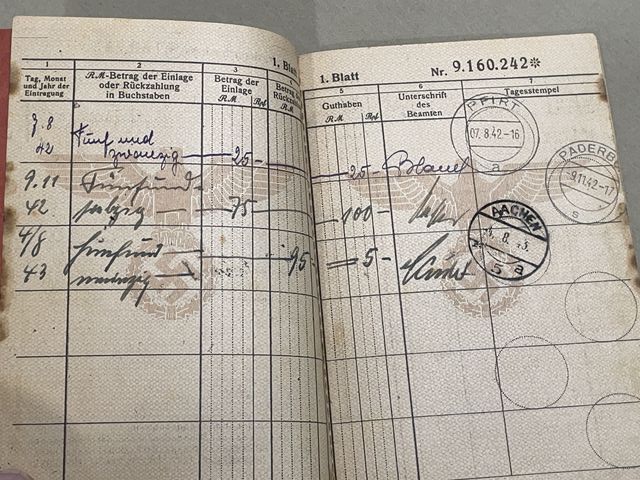 1. Blatt
1
2
3
4
Tag, Monat
und Jahr der
Eintragung
R.M-Betrag der Einlage
oder Rückzahlung
in Buchstaben
Betrag der
Einlage
R.M Rpf
Betrag der
Rückzahl
R.M
7.8
42
Fünf und
zwanzig 25-
9.11
42
Fünfund-
75
4/8
43
Fünfund
95
1. Blatt
Nr. 9.160.242*
5
6
7
Guthaben
R.M Rpf
Unterschrift
des
Beamten
Tagesstempel
25-
100-
5-
PFIRT
07.8.42-16
a
PADERB
9.11.42-17
s
AACHEN
8.43
5 a